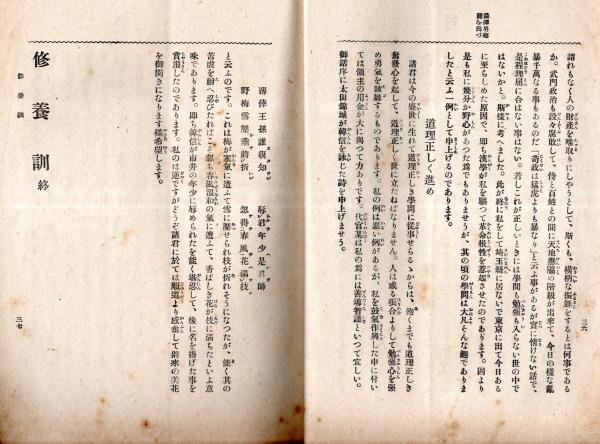 謂れもなく人の財產を唯取りにしやうとして、斯くも、橫柄な振舞をするとは何事である
か。武門政治も段々腐敗して、侍と百姓との間に天地懸隔の階級が出來て、今日の樣な亂
暴千萬なる事もあるのだ「苛政は猛虎よりも暴なり」と云ふ事があるが實に情けない話で、
是程理屈に合はない事はない。若しこれが正しいときには學問も勉强も入らない世の中で
はないかと。斯樣に考へました。此が終に私をして埼玉縣に居ないで東京に出て今日ある
に至らしめた原因で、卽ち漢學が私を驅つて革命根性を惹起させたのであります。固より
是も私に幾分か野心があつた爲でもありませうが、其の頃の學問は大凡そんな趣でありま
したと云ふ一例として申上げるのであります。
道理正しく進め
諸君は今の盛世に生れて道理正しき學問に從事せらるゝからは、飽くまでも道理正しき
奮發心を起して、道理正しく世に立たねばなりません。人は或る張合よりして勉强心を强
め勇氣を鼓舞するものであります。私の例は惡い例があるが、私を鼓氣作興した中に付い
ては領主の用金が大に與つて力ありです。代官某は私の爲には善導智識といつて宜しい。
御話序に太田錦城が韓信を詠じた詩を申上げませう。
三六
薄倖王孫誰復知 辱君年少是君師
野梅雪壓垂將折 忽得春風花滿枝
と云ふのです。これは梅が寒氣に遭ふて雪に壓せられ枝が折れそうになつたが、能く其の
苦虐を耐へ忍びたればこそ忽ち春風溫和の氣に遭ふて、香ばしき花が枝に滿ちたといふ意
味であります。卽ち韓信が市井の年少に辱められたを能く堪忍して、後に名を揚げた事を
賞讃したのであります。私のは逆ですがどうぞ諸君に於ては順道より感奮して將來の美花
を御開きになります樣希望します。
修養訓 終
修養訓
三七